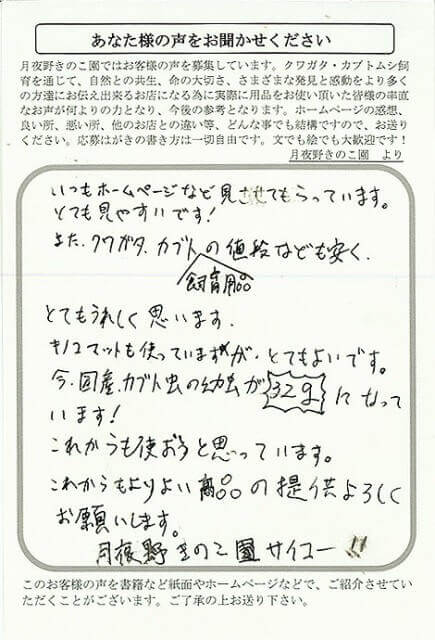 あなた様の声をお聞かせください
月夜野きのこ園ではお客様の声を募集しています。クワガタ・カブトムシ飼
育を通じて、自然との共生、命の大切さ、さまざまな発見と感動をより多く
の方達にお伝え出来るお店になる為に実際に用品をお使い頂いた皆様の率直
なお声が何よりの力となり、今後の参考となります。ホームページの感想、
良い所、悪い所、他のお店との違い等、どんな事でも結構ですので、お送り
ください。応募はがきの書き方は一切自由です。文でも絵でも大歓迎です！
月夜野きのこ園　より
いつもホームページなど見させてもらっています。
とても見やすいです！
また、クワガタ、カブトの値段なども安く、
飼育用品
とてもうれしく思います。
キノコマットも使っていますが、とてもよいです。
今、国産カブト虫の幼虫が32gになって
います！
これからも使おうと思っています。
これからもよりよい商品の提供よろしく
お願いします。
月夜野きのこ園サイコー!!
このお客様の声を書籍など紙面やホームページなどで、ご紹介させてい
ただくことがございます。ご了承の上お送り下さい。